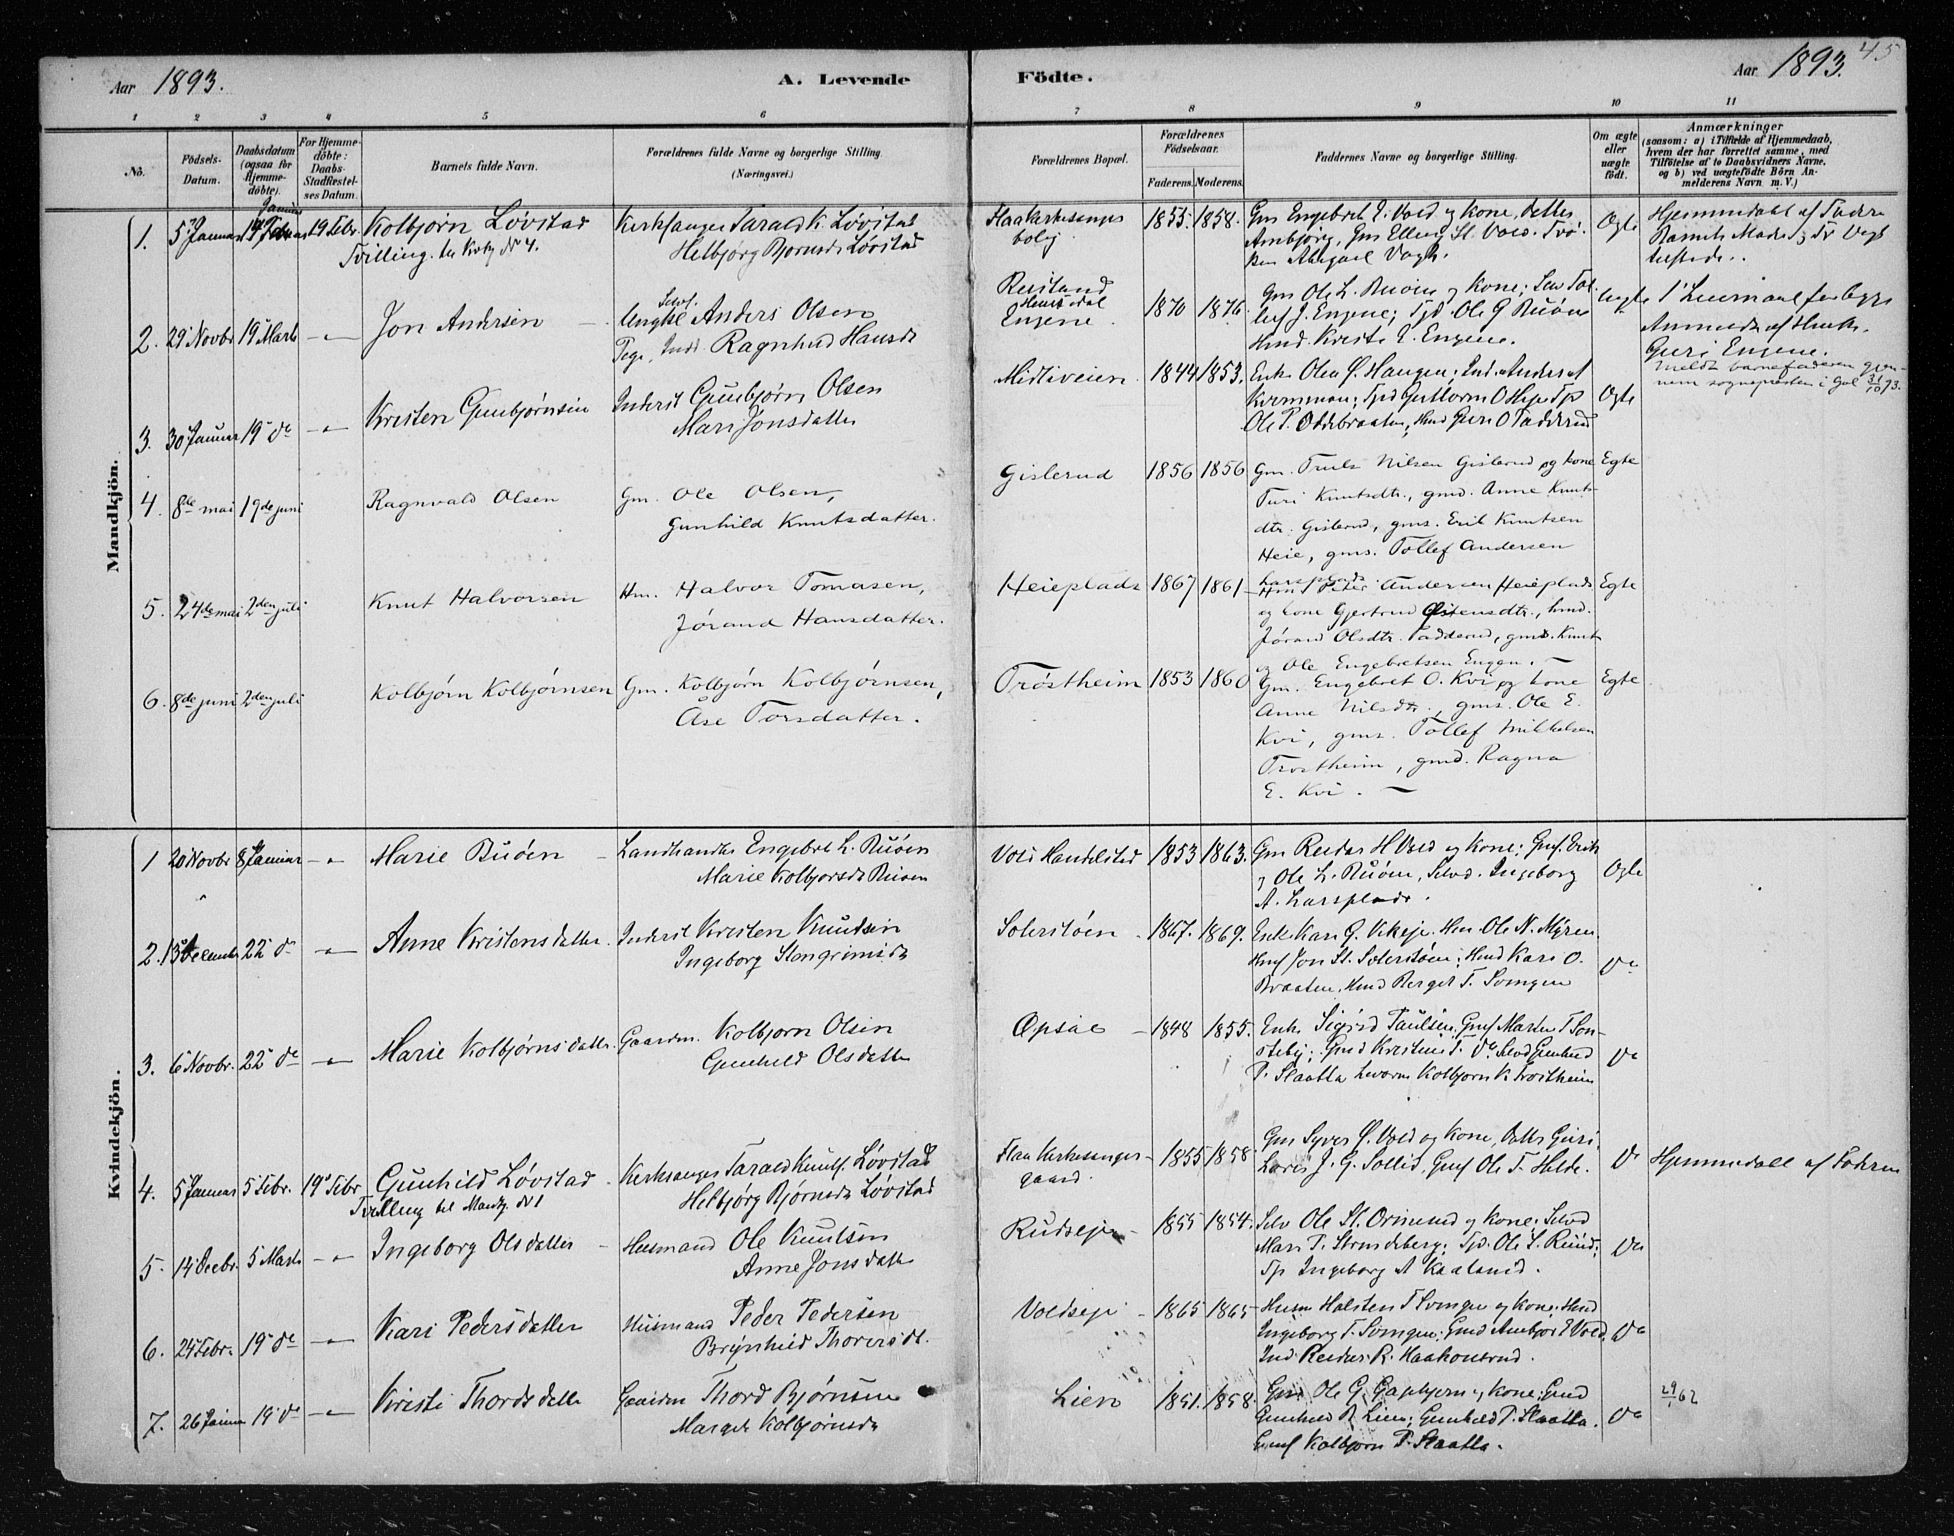 Aar 1893.
A. Levende
Födte.
Aar 1893.
45
1 2 3 4 5 6 7 8 9 10 11
No.
Födsels-Datum.
Daabsdatum (ogsaa for Hjemmedöbte).
For Hjemmedöbte: Daabs-Stadfestelses Datum.
Barnets fulde Navn.
Forældrenes fulde Navne og borgerlige Stilling. (Næringsvei.)
Forældrenes Bopæl.
Forældrenes Födselsaar.
Faderens. Moderens.
Faddernes Navne og borgerlige Stilling.
Om ægte eller uægte födt.
Anmærkninger
(saasom: a) i Tilfælde af Hjemmedaab, hvem der har forrettet samme, med Tilföielse af to Daabsvidners Navne, og b) ved uægtefödte Börn Anmelderens Navn m. V.)
Mandkjön.
1. 5 Januar 19 Febr Kolbjørn Løvstad
Tvilling
Kirksanger Tarald K. Løvstad
Helbjørg Bjørnsd Løvstad
Flaa Kirkesanger
bolig
1855. 1858.
Gm Engebret Vold og Kone, Datter
Ambjørg,
Ægte
Hjemmedøbt af Fadere
2. 29 Novbr 19 Marts Jon Andersen
Selvf.
Ungke Anders Olsen
Pige, Ind. Ragnhild Hansd
Engene.
1870 1876
Gm Ole L. Buøen og Kone; Selv Tol
lef J. Engene; Ole G Buøen
Kristi E. Engene.
Uægte
1' Leiermaal for begge
Anmeldt af
Guri Engene.
Meldt barnefaderen gjen-
nem sognepresten i Gol 31/10 93.
3. 30 Januar 19 do Kristen Gunbjørnsen
Inderst Gunbjørn Olsen
Mari Jonsdatter
Midtiveien 1844 1853.
Enk. Olea Ø. Haugen; Ind. Anders A
Kvinman; Guttorm O Heje
Ole P. Oddebraaten; Guri O Tadderud
Ægte
4. 8de mai 19de juni Ragnvald Olsen
Gm. Ole Olsen,
Gunhild Knutsdatter.
Gislerud 1856 1856
Gm. Truls Nilsen Gislerud og kone
Turi Knutsdtr., gmd. Anne Knuts-
dtr. Gislerud, gms. Erik Knutsen
Heie, gms. Tollef Andersen
Egte
5. 24de mai 2den juli Knut Halvorsen
Hm. Halvor Tomasen,
Jørand Hansdatter.
Heieplads 1867 1861
Larsplads
Hm. Peter Andersen Heieplads
og kone Gjertrud Østensdtr., hmd.
Jørand Olsdtr. Tadderud, gms. Knut
og Ole Engebretsen Engen.
Egte
6. 8de juni 2den juli Kolbjørn Kolbjørnsen
Gm. Kolbjørn Kolbjørnsen,
Åse Torsdatter.
Trøstheim 1853 1860
Gm. Engebret O. Kvi og kone
Anne Nilsdtr., gms. Ole E.
Kvi, gms. Tollef Mikkelsen
Trøstheim, gmd. Ragna
E. Kvi.
Egte
Kvindekjön.
1 20 Novbr 8 Januar Marie Buøen
Landhandler Engebret L. Buøen
Marie Kolbjørsd Buøen
Vold Handelsted 1853 1863.
Gm Reidar H Vold og Kone; Gmf. Erik
og Ole L. Buøen, Selvd. Ingeborg
A. Larsplads.
Ægte
2. 15 December 22 do Anne Kristensdatter
Inderst Kristen Knudsen
Ingeborg Stengrimsd
Solerstøen 1867. 1869.
Enk. Kari G. Ole N. Myren
Jon St. Solerstøen; Hmd Kari O.
Braaten, Hmd Berget T. Svingen
do
3. 6 Novbr. 22 do Marie Kolbjørnsdatter
Gaardm. Kolbjørn Olsen
Gunhild Olsdatter
Opsae 1848 1855.
Enk. Sigrid Paulsen, Gmf Marten T Søn-
steby; Gmd Kristine T. do Selvd Gunhild
P. Slaatta Kolbjørn K Trøstheim
do
4. 5 Januar 5 Febr. 19 Febr Gunhild Løvstad
Tvilling til Mandkj. No 1
Kirksanger Tarald Knuts. Løvstad
Helbjørg Bjørnsd Løvstad
Flaa Kirkesanger-
gaard
1855 1858
Gm Syver Ø. Vold og Kone, Datter Guri,
Lærer J. G. Sollid, Gmf Ole T. Hilde.
do
Hjemmedøbt af Faderen
5. 14 Decbr. 5 Marts Ingeborg Olsdatter
Husmand Ole Knutsen
Anne Jonsdatter
Rudseje 1855 1854.
Selv Ole St. og Kone; Selvd
Mari P. Strandeberg; Ole S. Ruud;
Ingeborg A Kaaland.
do
6. 24 Febr. 19 do Kari Pedersdatter
Husmand Peder Pedersen
Brynhild Thoresdt.
Voldseje 1865 1865
Husm Halsten T Svingen og Kone; Hmd
Ingeborg T. Svingen; Gmd Ambjør E Vold,
Ind. Reidar R. Haakonsrud.
do
7. 26 Januar 19 do Kristi Thordsdatter
Gaardm Thord Bjørnsen
Margit Kolbjørnsd
Lien 1851. 1858.
Gm Ole G Gapbjern og Kone; Gmd
Gunhild B. Lien; Gunhild P. Slaatta.
Gmf Kolbjørn P. Slaatta.
do
29/1 62